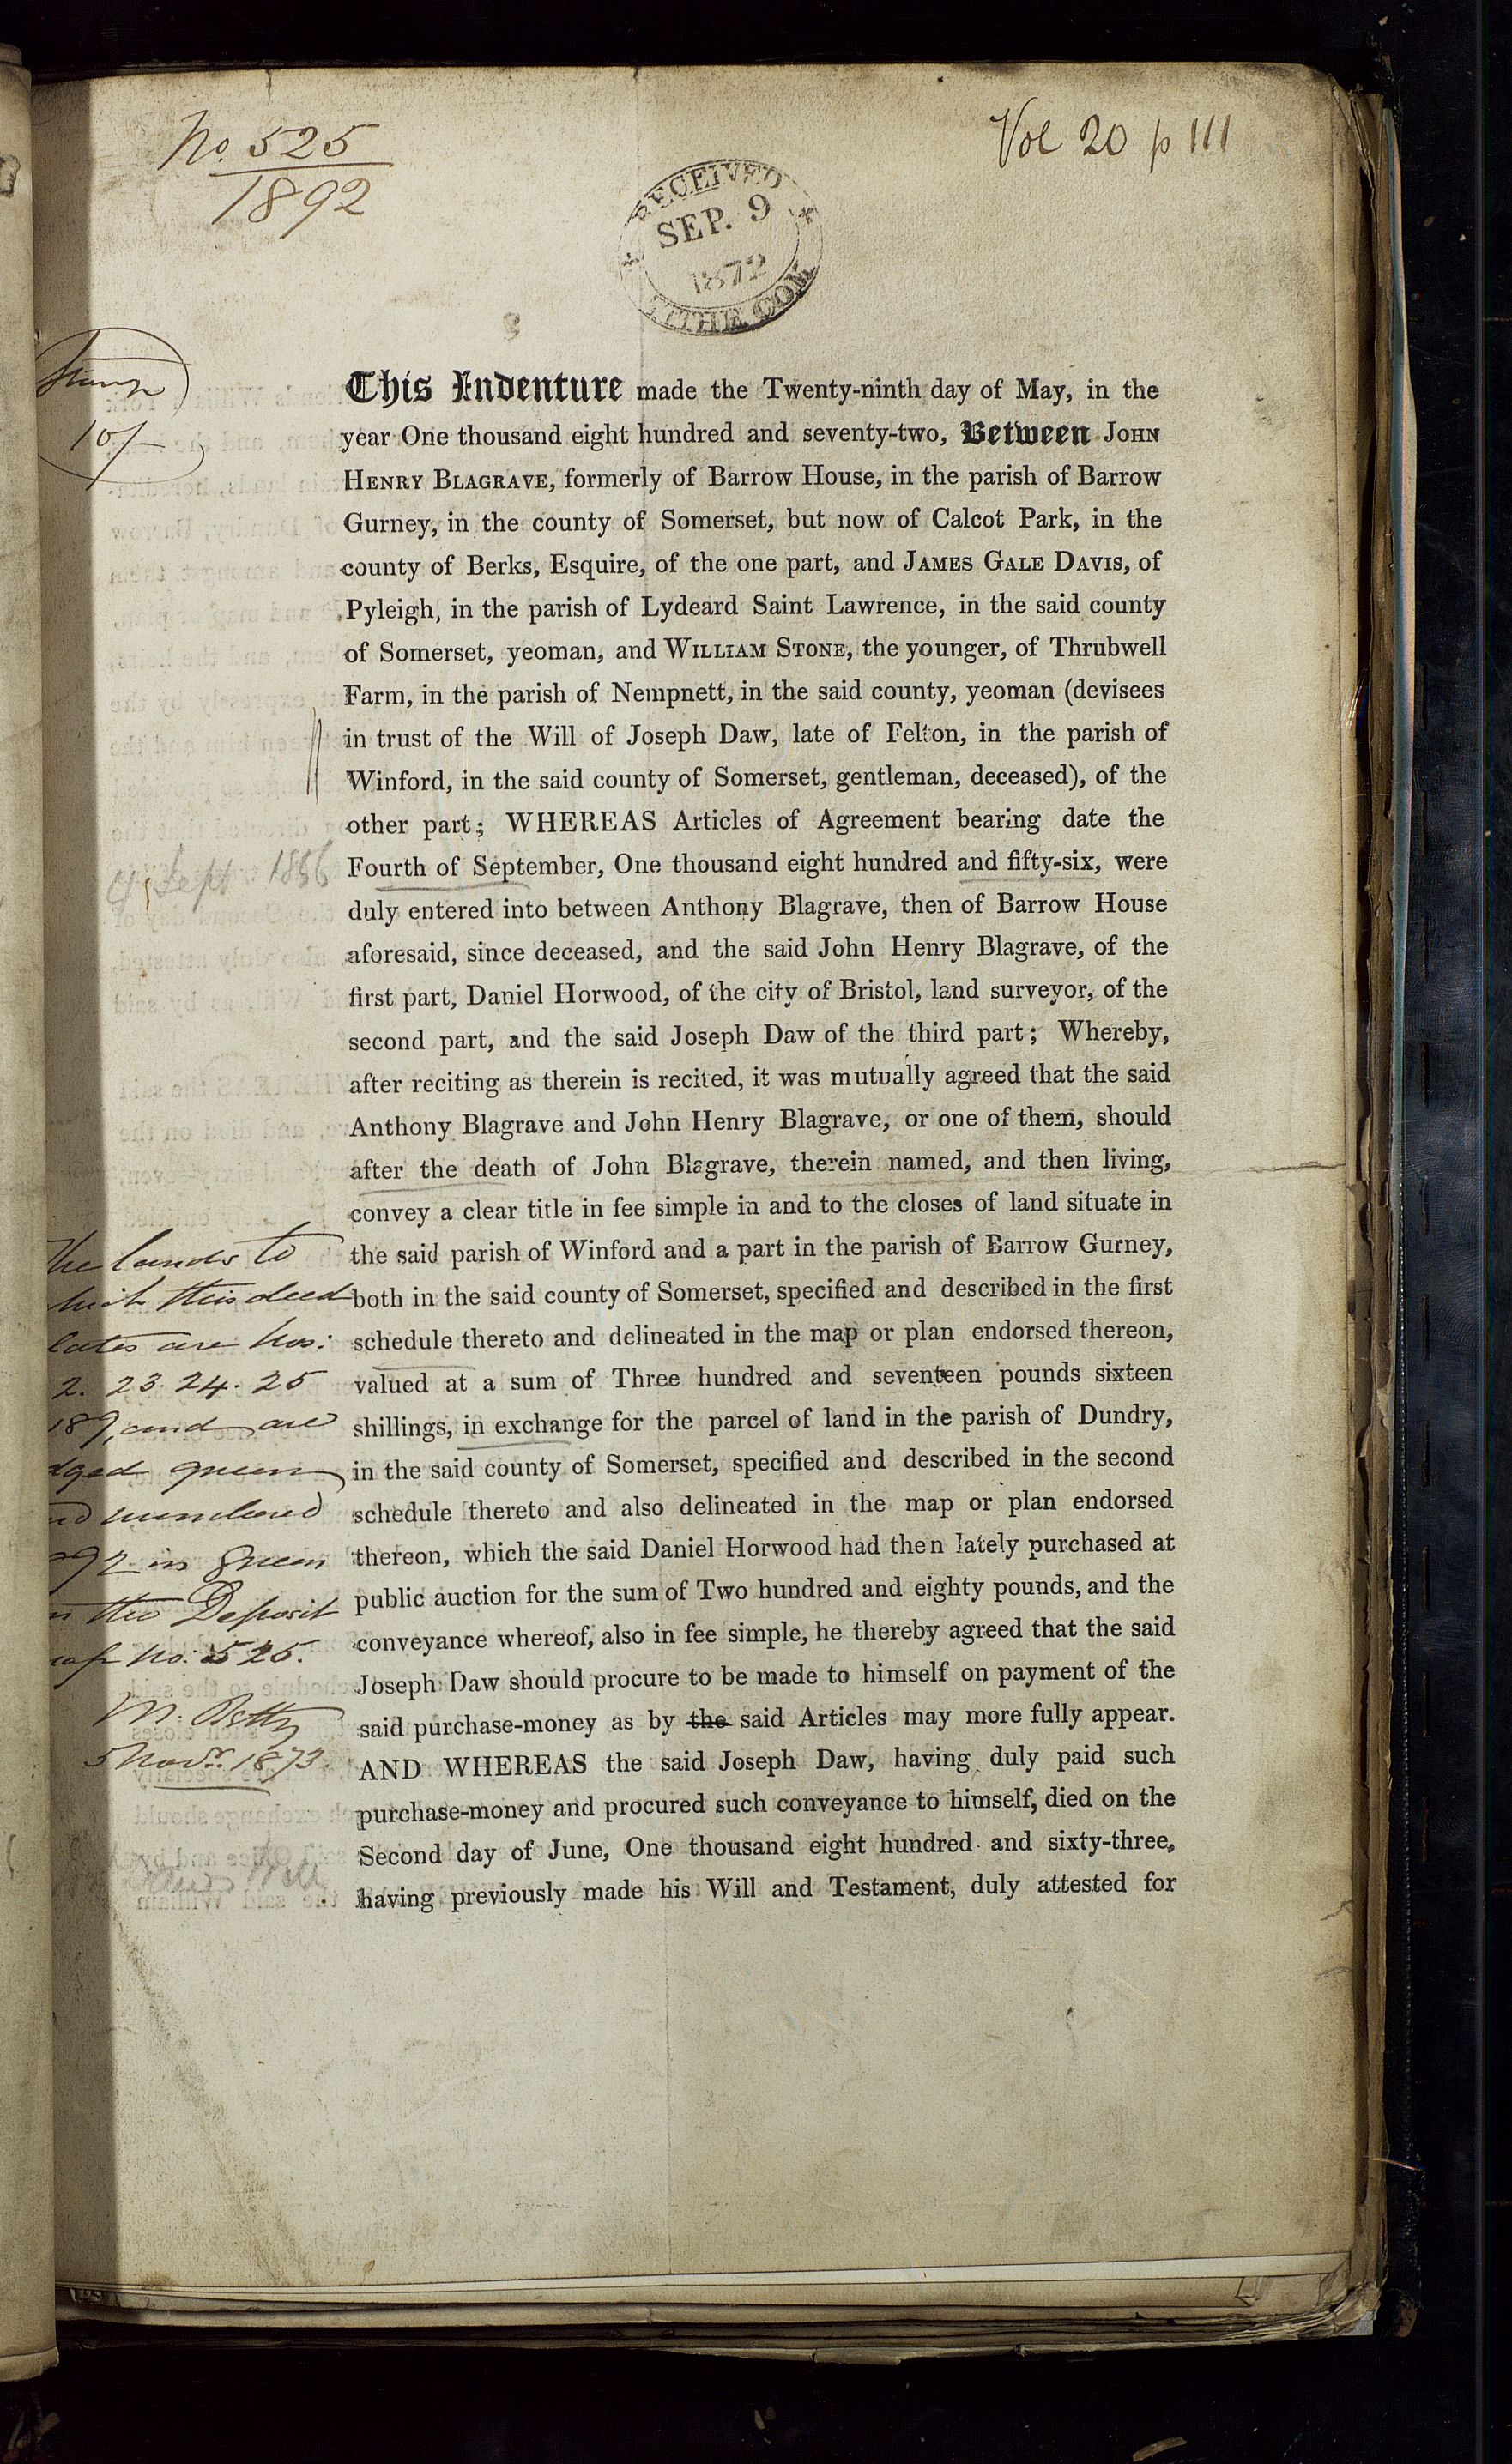 No. 525
1892
Vol 20 p 111
RECEIVED
SEP. 9
1872
TITHE COM
Stamp
10/-
This Indenture made the Twenty-ninth day of May, in the
year One thousand eight hundred and seventy-two, Between JOHN
HENRY BLAGRAVE, formerly of Barrow House, in the parish of Barrow
Gurney, in the county of Somerset, but now of Calcot Park, in the
county of Berks, Esquire, of the one part, and JAMES GALE DAVIS, of
Pyleigh, in the parish of Lydeard Saint Lawrence, in the said county
of Somerset, yeoman, and WILLIAM STONE, the younger, of Thrubwell
Farm, in the parish of Nempnett, in the said county, yeoman (devisees
in trust of the Will of Joseph Daw, late of Felton, in the parish of
Winford, in the said county of Somerset, gentleman, deceased), of the
other part; WHEREAS Articles of Agreement bearing date the
Fourth of September, One thousand eight hundred and fifty-six, were
duly entered into between Anthony Blagrave, then of Barrow House
aforesaid, since deceased, and the said John Henry Blagrave, of the
first part, Daniel Horwood, of the city of Bristol, land surveyor, of the
second part, and the said Joseph Daw of the third part; Whereby,
after reciting as therein is recited, it was mutually agreed that the said
Anthony Blagrave and John Henry Blagrave, or one of them, should
after the death of John Blagrave, therein named, and then living,
convey a clear title in fee simple in and to the closes of land situate in
the said parish of Winford and a part in the parish of Barrow Gurney,
both in the said county of Somerset, specified and described in the first
schedule thereto and delineated in the map or plan endorsed thereon,
valued at a sum of Three hundred and seventeen pounds sixteen
shillings, in exchange for the parcel of land in the parish of Dundry,
in the said county of Somerset, specified and described in the second
schedule thereto and also delineated in the map or plan endorsed
thereon, which the said Daniel Horwood had then lately purchased at
public auction for the sum of Two hundred and eighty pounds, and the
conveyance whereof, also in fee simple, he thereby agreed that the said
Joseph Daw should procure to be made to himself on payment of the
said purchase-money as by the said Articles may more fully appear.
AND WHEREAS the said Joseph Daw, having duly paid such
purchase-money and procured such conveyance to himself, died on the
Second day of June, One thousand eight hundred and sixty-three,
having previously made his Will and Testament, duly attested for
4 Sept 1856
the lands to
this deed
are Nos:
2. 23. 24. 25
189, and are
green
numbered
92 in green
the Deposit
No. 525.
5 Novr. 1873.